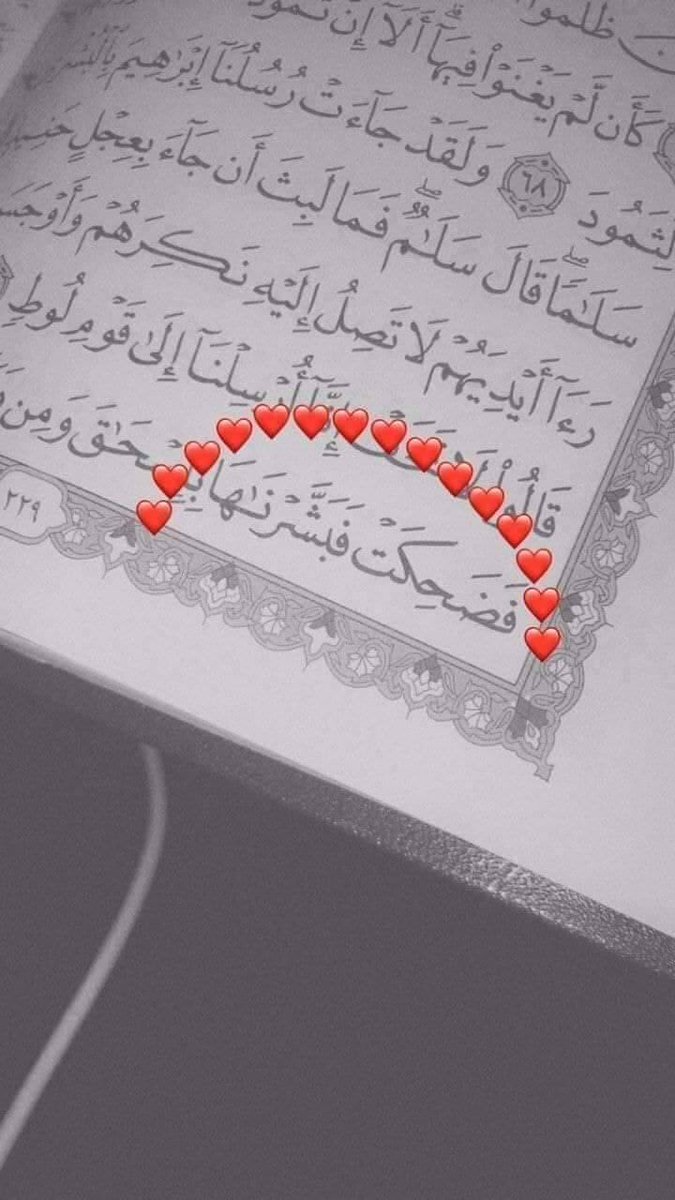 ظَلَمُوا۟
كَأَن لَّمْ يَغْنَوْا۟ فِيهَآ ۗ أَلَآ إِنَّ ثَمُودَا۟
لِّثَمُودَ ٦٨ وَلَقَدْ جَآءَتْ رُسُلُنَآ إِبْرَٰهِيمَ بِٱلْبُشْرَىٰ
سَلَٰمًا ۖ قَالَ سَلَٰمٌ ۖ فَمَا لَبِثَ أَن جَآءَ بِعِجْلٍ
رَءَآ أَيْدِيَهُمْ لَا تَصِلُ إِلَيْهِ نَكِرَهُمْ وَأَوْجَسَ
قَالُوا۟ إِنَّآ أُرْسِلْنَآ إِلَىٰ قَوْمِ لُوطٍ
فَضَحِكَتْ فَبَشَّرْنَٰهَا بِإِسْحَٰقَ وَمِن
٢٢٩